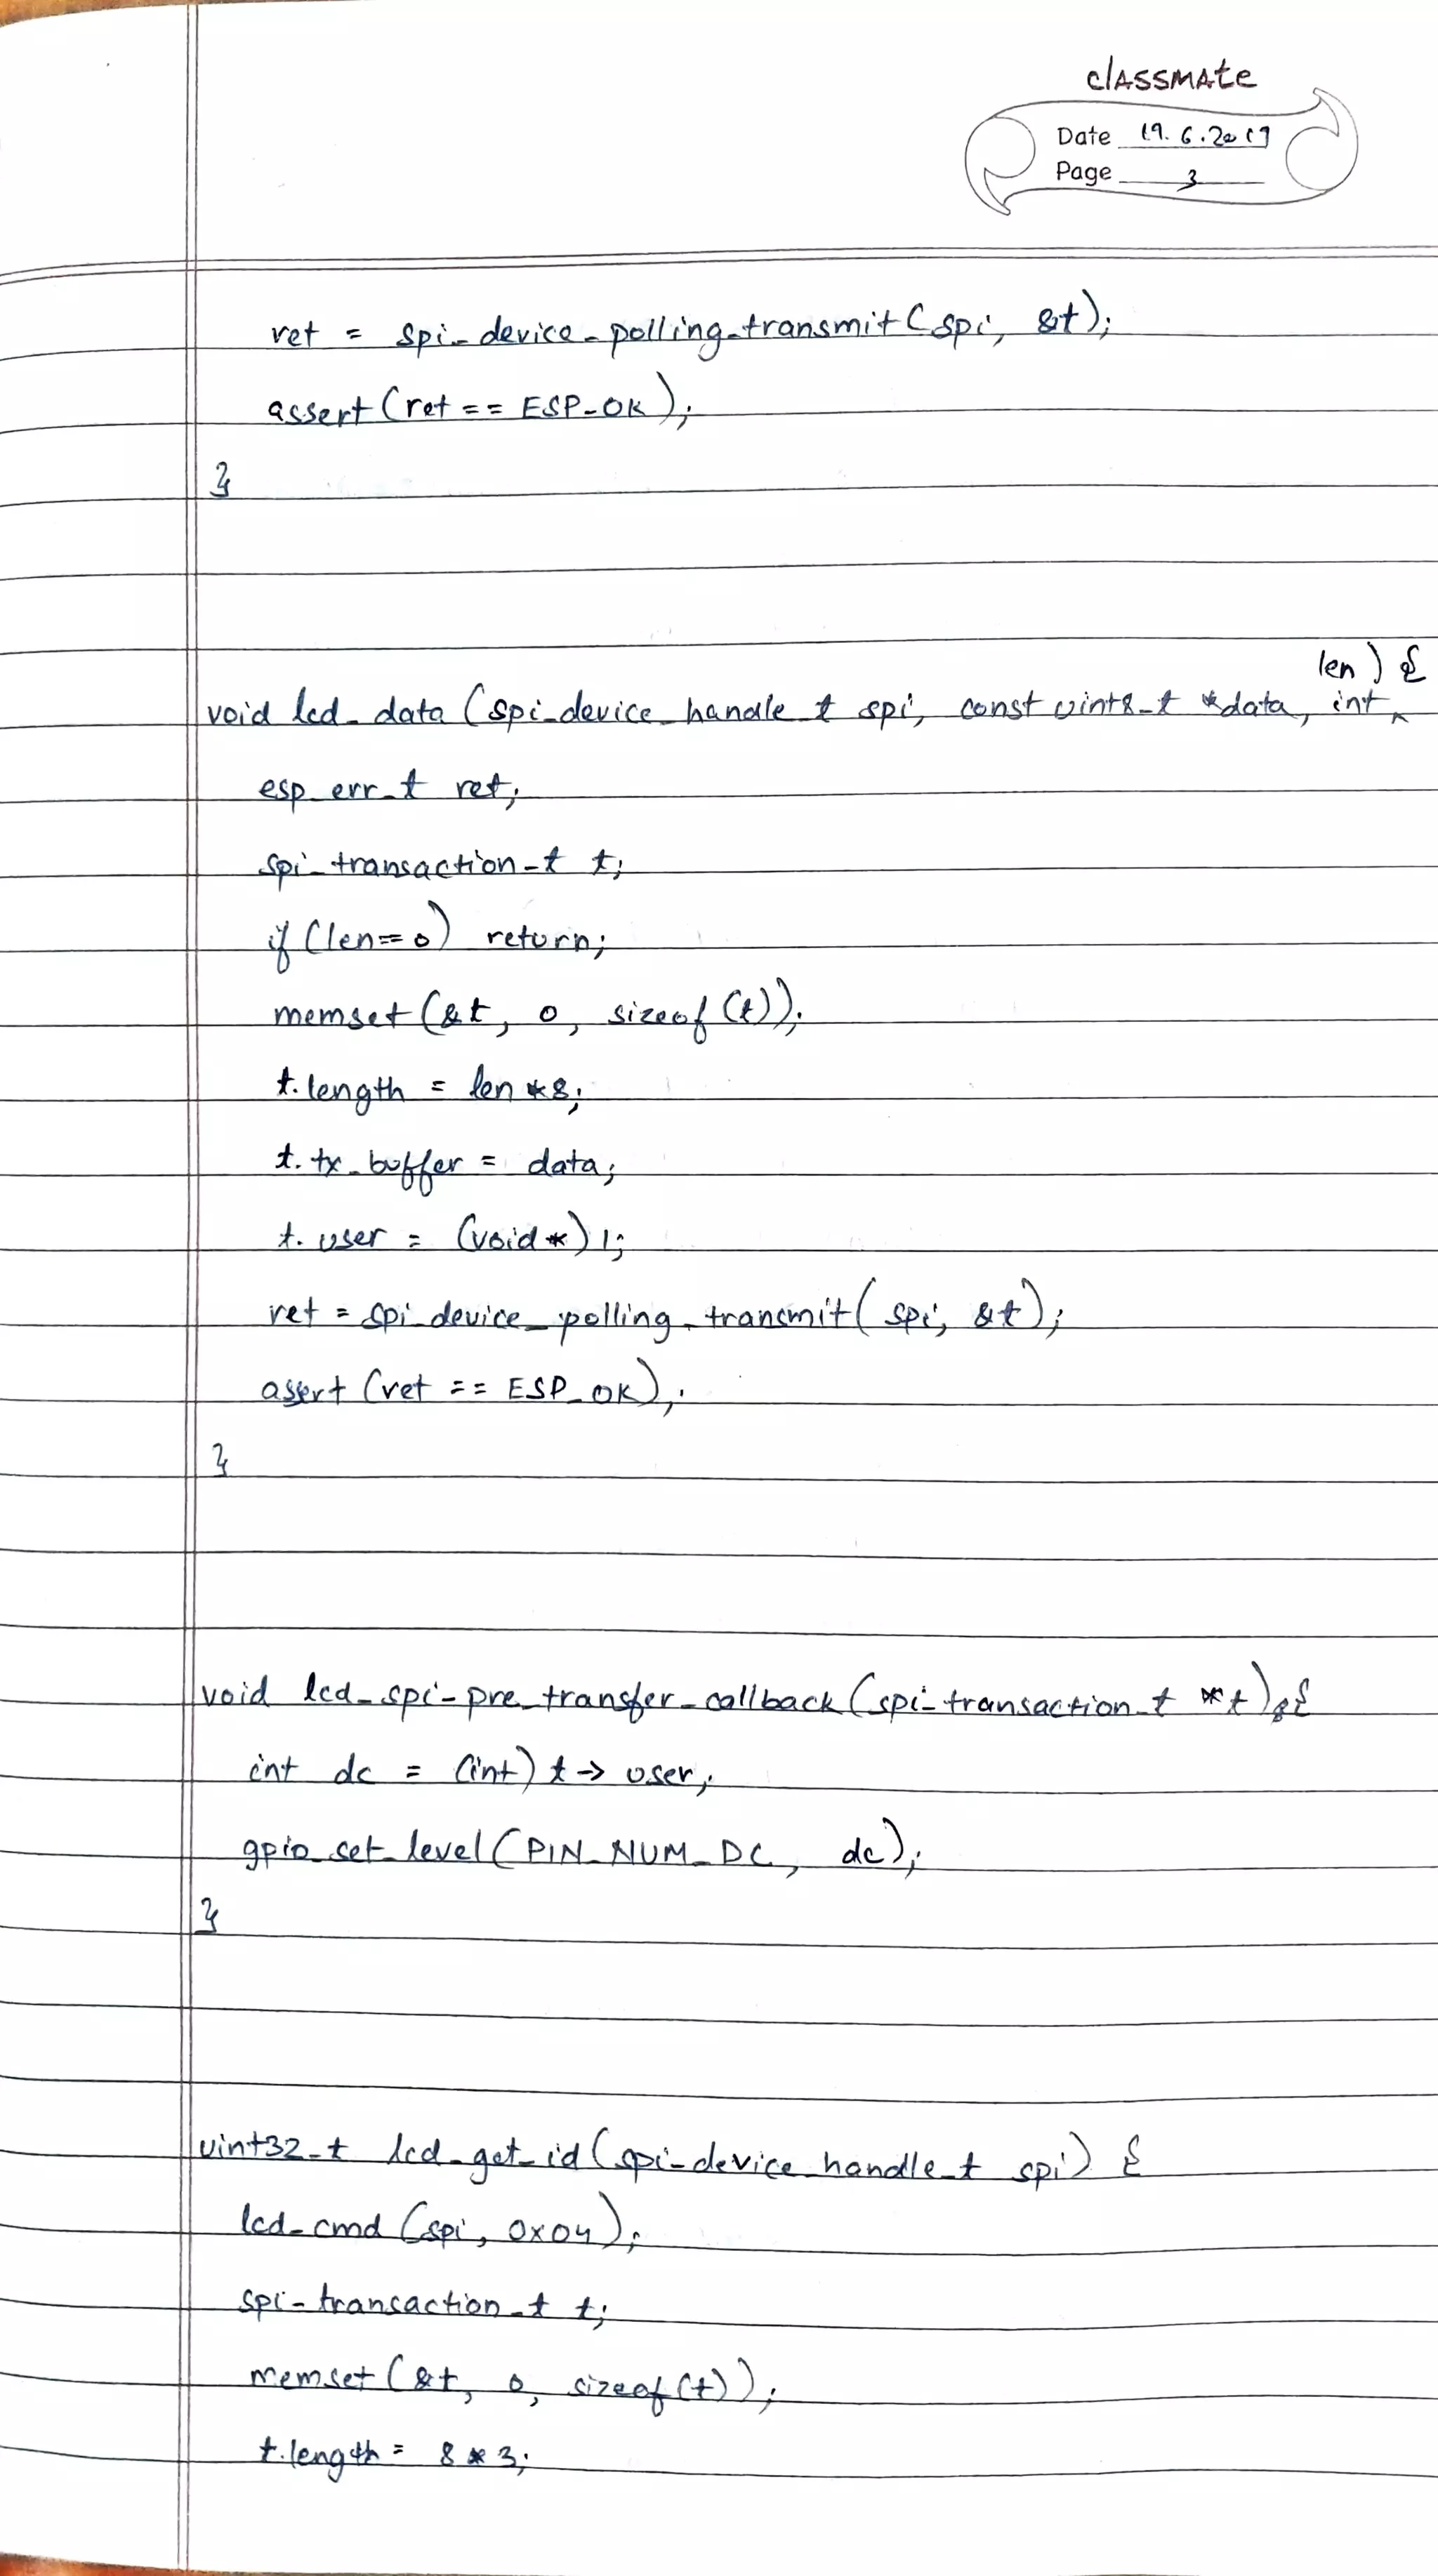 classmate
Date 19.6.2019
Page 3
ret = spi_device_polling_transmit(spi, &t);
assert(ret == ESP_OK);
}
len) {
void lcd_data (spi_device_handle_t spi, const uint8_t *data, int ^
esp_err_t ret;
spi_transaction_t t;
if (len==0) return;
memset(&t, 0, sizeof(t));
t.length = len*8;
t.tx_buffer = data;
t.user = (void*)1;
ret = spi_device_polling_transmit(spi, &t);
assert (ret == ESP_OK);
}
void lcd_spi_pre_transfer_callback(spi_transaction_t *t) {
int dc = (int) t-> user;
gpio_set_level(PIN_NUM_DC, dc);
}
uint32_t lcd_get_id(spi_device_handle_t spi) {
lcd_cmd (spi, 0x04);
spi_transaction_t t;
memset(&t, 0, sizeof(t));
t.length = 8*3;